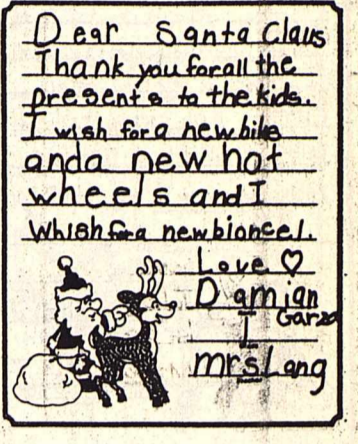 Dear Santa Claus
Thank you for all the
presents to the kids.
I wish for a new bike
and a new hot
wheels and I
whish for a new bioncel.
Love ♡
Damian
Garza
1
mrs Lang